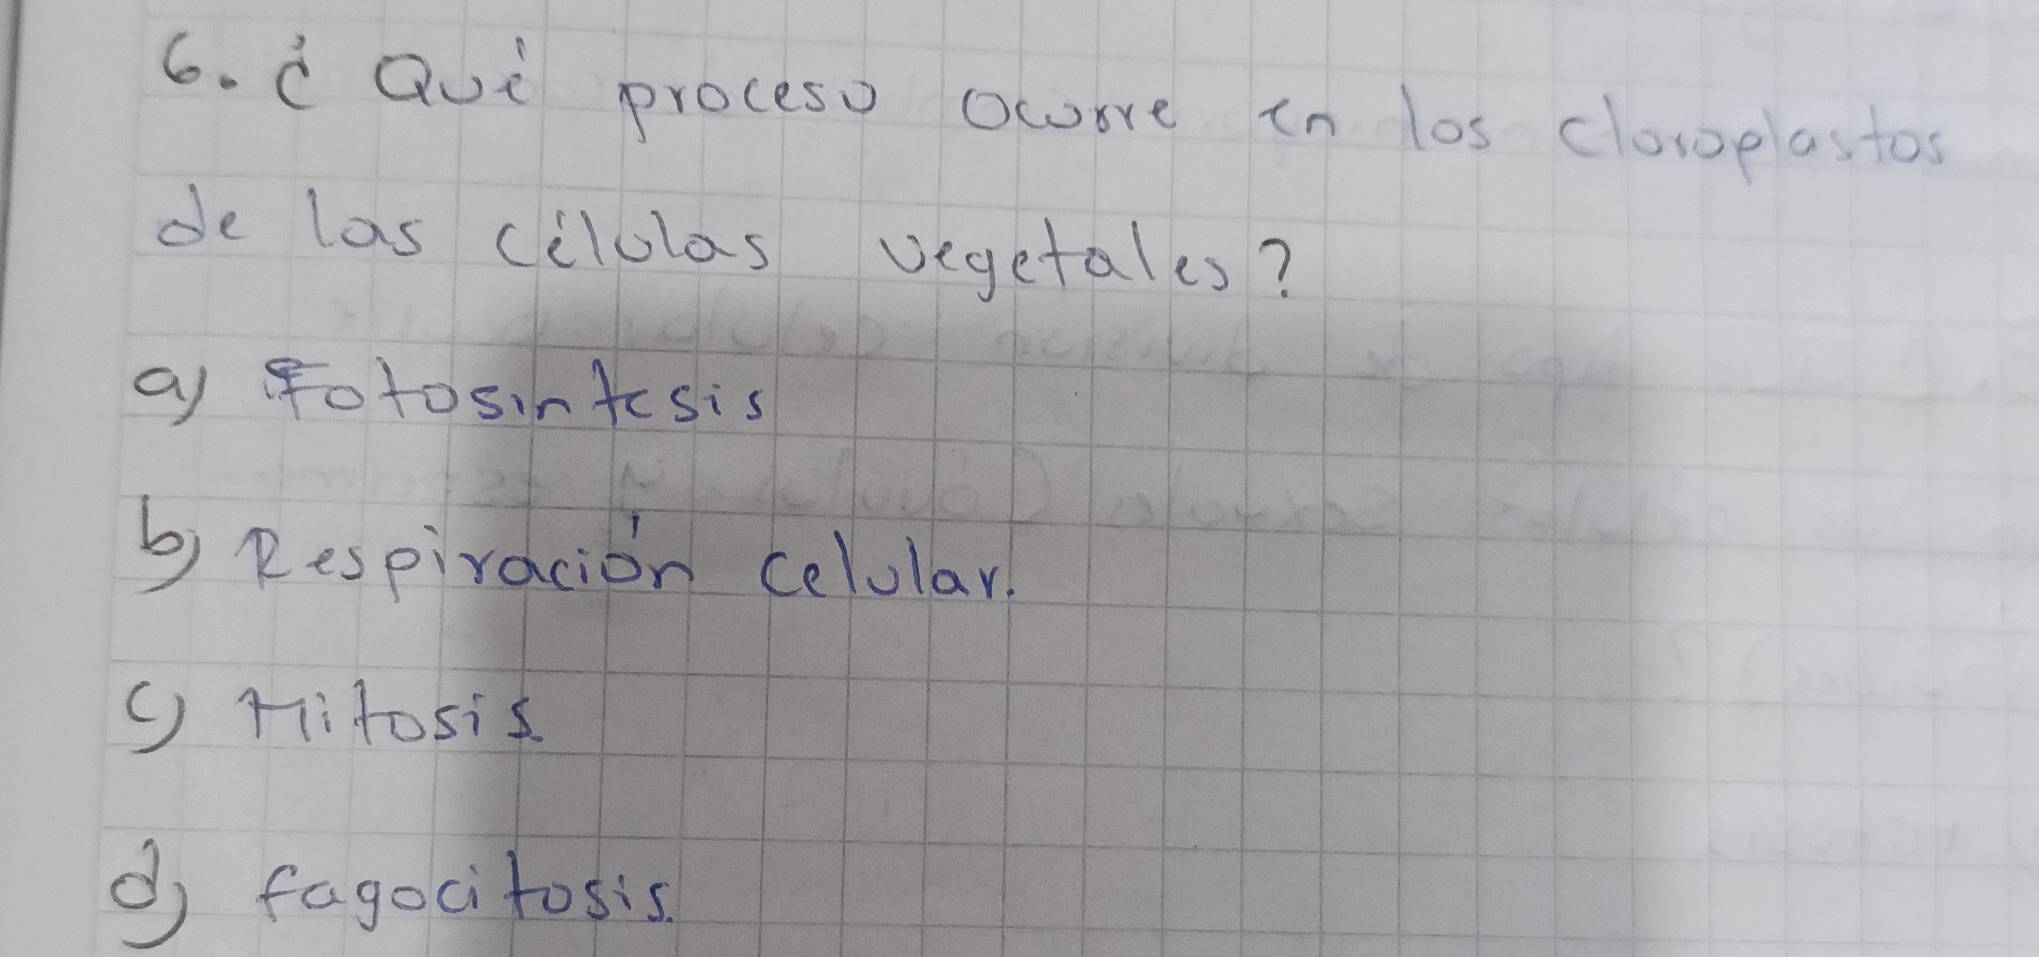 6. ¿ Qué proceso ocurre en los cloroplastos
de las células vegetales?
a) Fotosintesis
b) Respiración celular.
c) Mitosis.
d) fagocitosis.